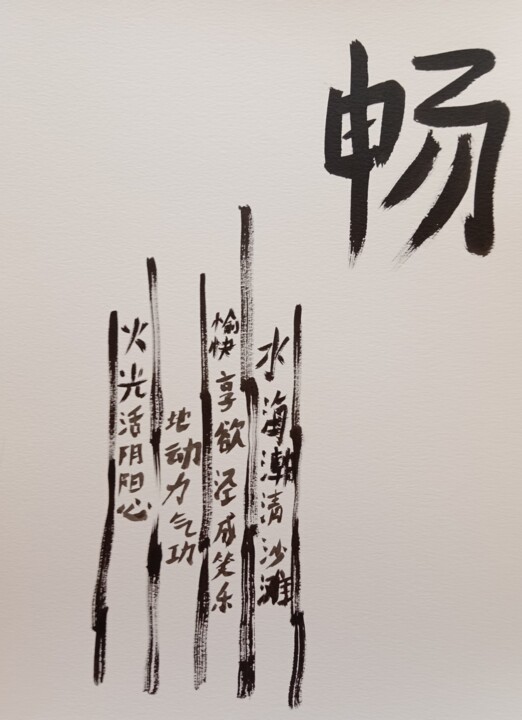 畅
水海潮清沙滩
愉快享欲泾成笑乐
地动力气功
火光活阴阳心